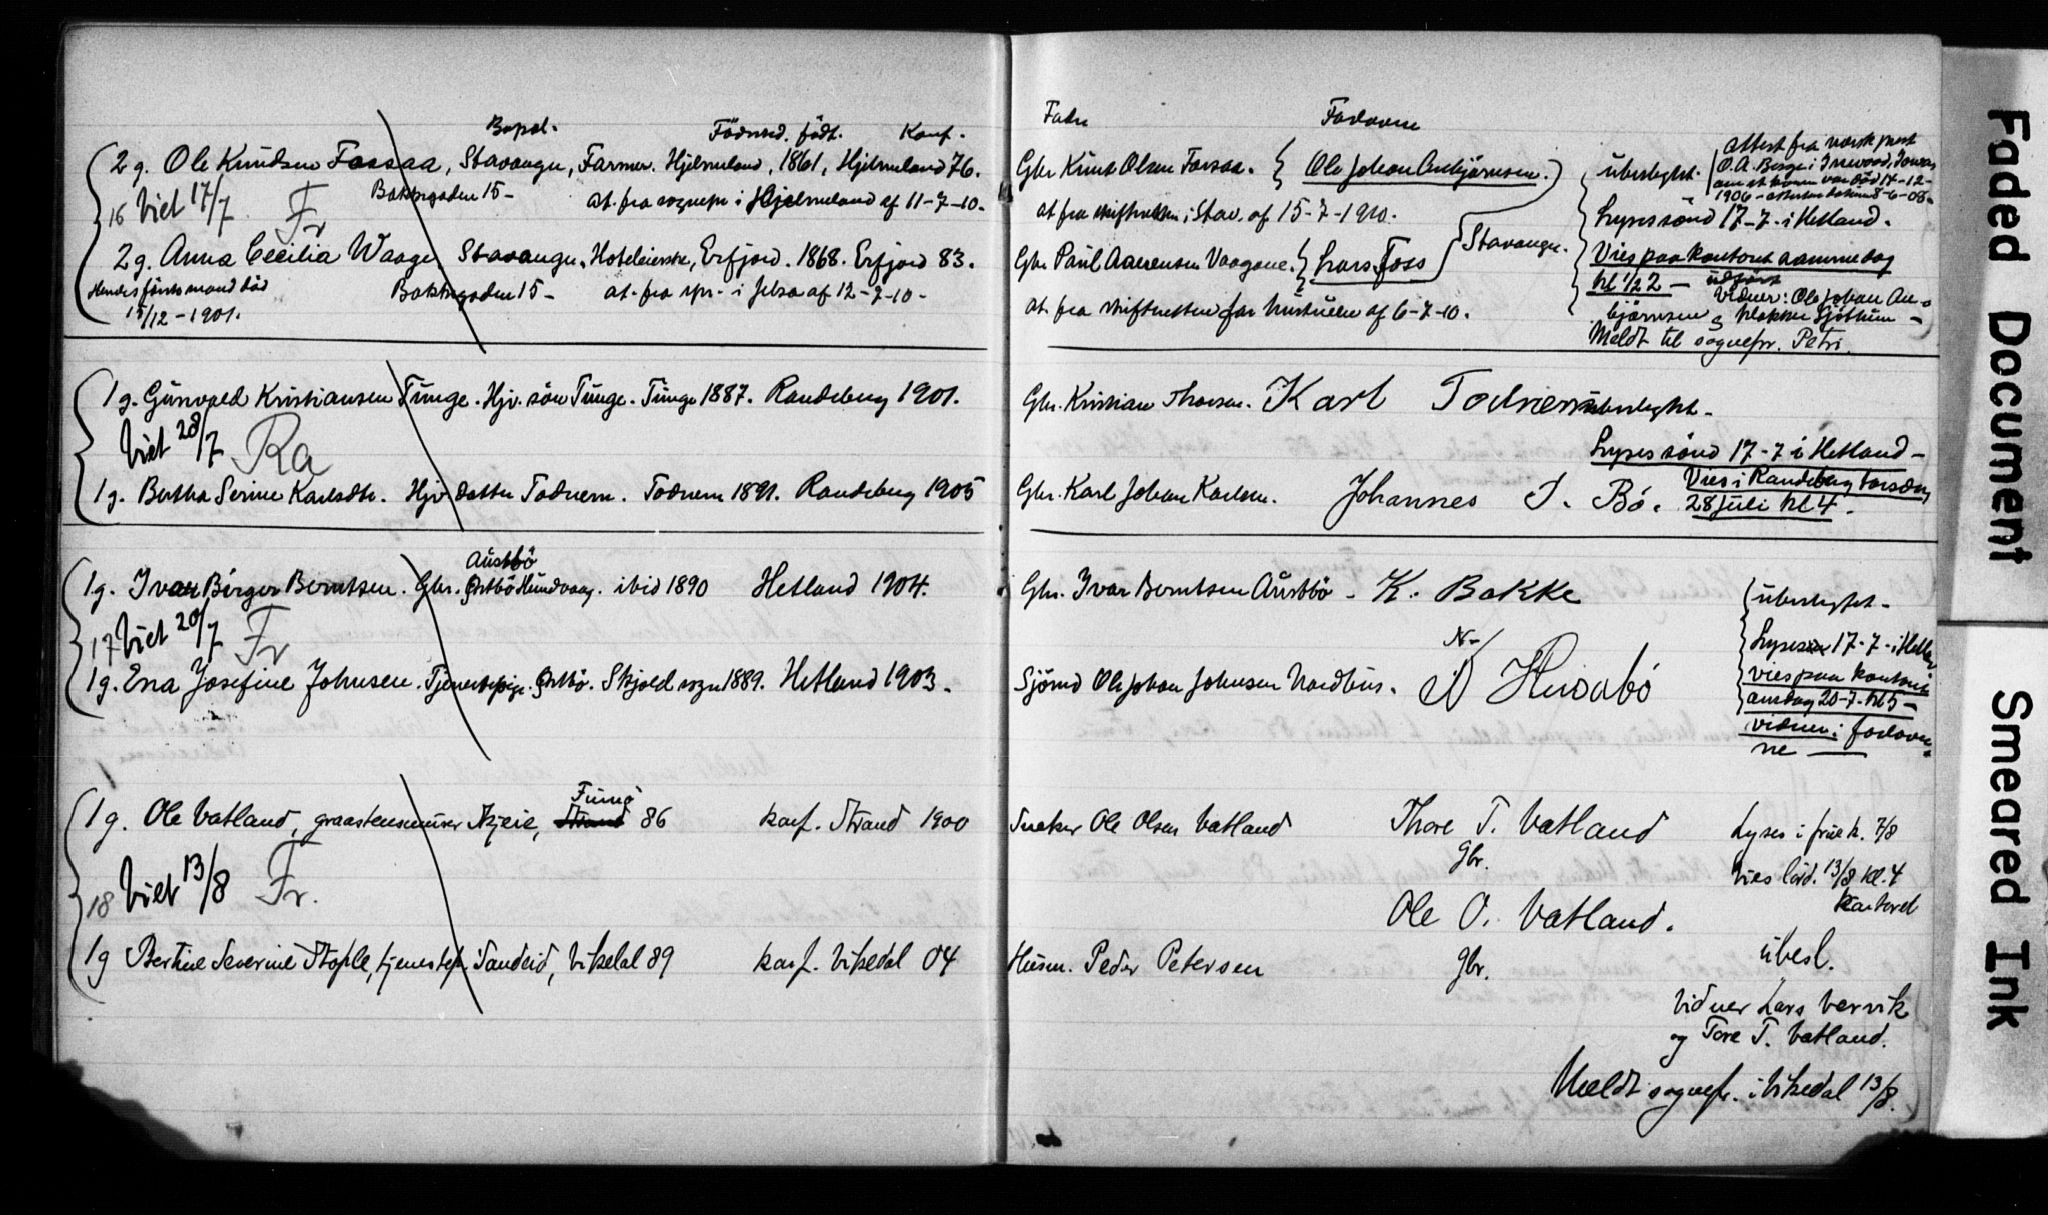 Bopæl. Födested. födt. Konf.
2 g. Ole Knudsen Fossaa, Stavanger, Farmer. Hjelmeland, 1861, Hjelmeland 76.
16 Viet 17/7 Fr Bakkegaden 15 - at. fra sognepr. i Hjelmeland af 11-7-10.
2 g. Anna Cecilia Waage, Stavanger, Hoteleierske, Erfjord. 1868. Erfjord 83.
Hendes förste mand död Bakkegaden 15 - at. fra spr. i Jelsa af 12-7-10 -
15/12 - 1901.
1 g. Gunvald Kristiansen Tunge. Hjv. sön Tunge. Tunge 1887. Randeberg 1901.
Viet 28/7 Ra
1 g. Bertha Serine Karlsdtr. Hjv datter Todnem. Todnem 1891. Randeberg 1905
Austbö
1 g. Ivar Birger Berntsen. Gbr. Östbö Hundvaag. ibid 1890 Hetland 1904.
17 Viet 20/7 Fr
1 g. Ena Josefine Johnsen. Tjenestepige. Östbö. Skjold sogn 1889. Hetland 1903.
Fuinö
1 g. Ole Vatland, graastensmurer Azjeie, Strand 86 konf. Strand 1900
18 Viet 13/8 Fr.
1 g Bertine Severine Stople, tjenestep. Sandeid, Vikedal 89 konf. Vikedal 04
Fader Forlovere
Gbr Knut Olsen Fossaa. Ole Johan Anbjörnsen.
at fra skifteretten i Stav. af 15-7-1910.
Gbr. Paul Aanensen Vaagane. Lars Foss Stavanger.
at. fra skifteretten for af 6-7-10.
attest fra norsk prest
O.A. Berge i Inwood, Iowa
om at konen var död 17-12-
1906 - attesten datum 8-6-08.
ubeslegt.
Lyses sönd 17-7- i Hetland.
Vies paa kontoret samme dag
kl 1/2 2 - udfört
Vidner: Ole Johan An-
björnsen og klokker Sjöthun -
Meldt til sognepr. Petri.
Gbr. Kristian Thorsen. Karl Todnem ubeslegt.
Lyses sönd 17-7 i Hetland -
Vies i Randeberg torsdag
Gbr. Karl Johan Karlsen. Johannes I. Bö. 28 juli kl 4.
Gbr. Ivar Berntsen Austbö - K. Bakke ubeslegtet -
Lyses 17-7- i Hetland
Sjömd Ole Johan Johnsen Nordbus. N Husabö vies paa kontoret
onsdag 20-7- kl 5 -
vidner: forlover-
ne
Snekker Ole Olsen Vatland Thore T. Vatland Lyses i frue k. 7/8
Gbr. Vies lörd. 13/8 kl. 4
Kontoret
Ole O. Vatland.
Husm. Peder Petersen gbr. ubesl.
Vidner Lars Vervik
og Tore T. Vatland.
Meldt sognepr. i Vikedal 13/8.
Faded Document
Smeared Ink